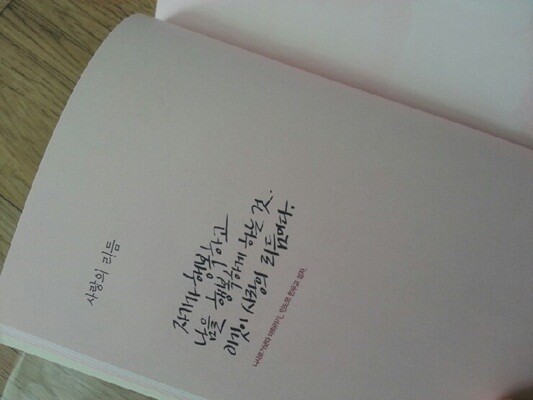 사랑의 리듬
자기가 행복하고
남을 행복하게 하는 것.
이것이 사랑의 리듬이다.